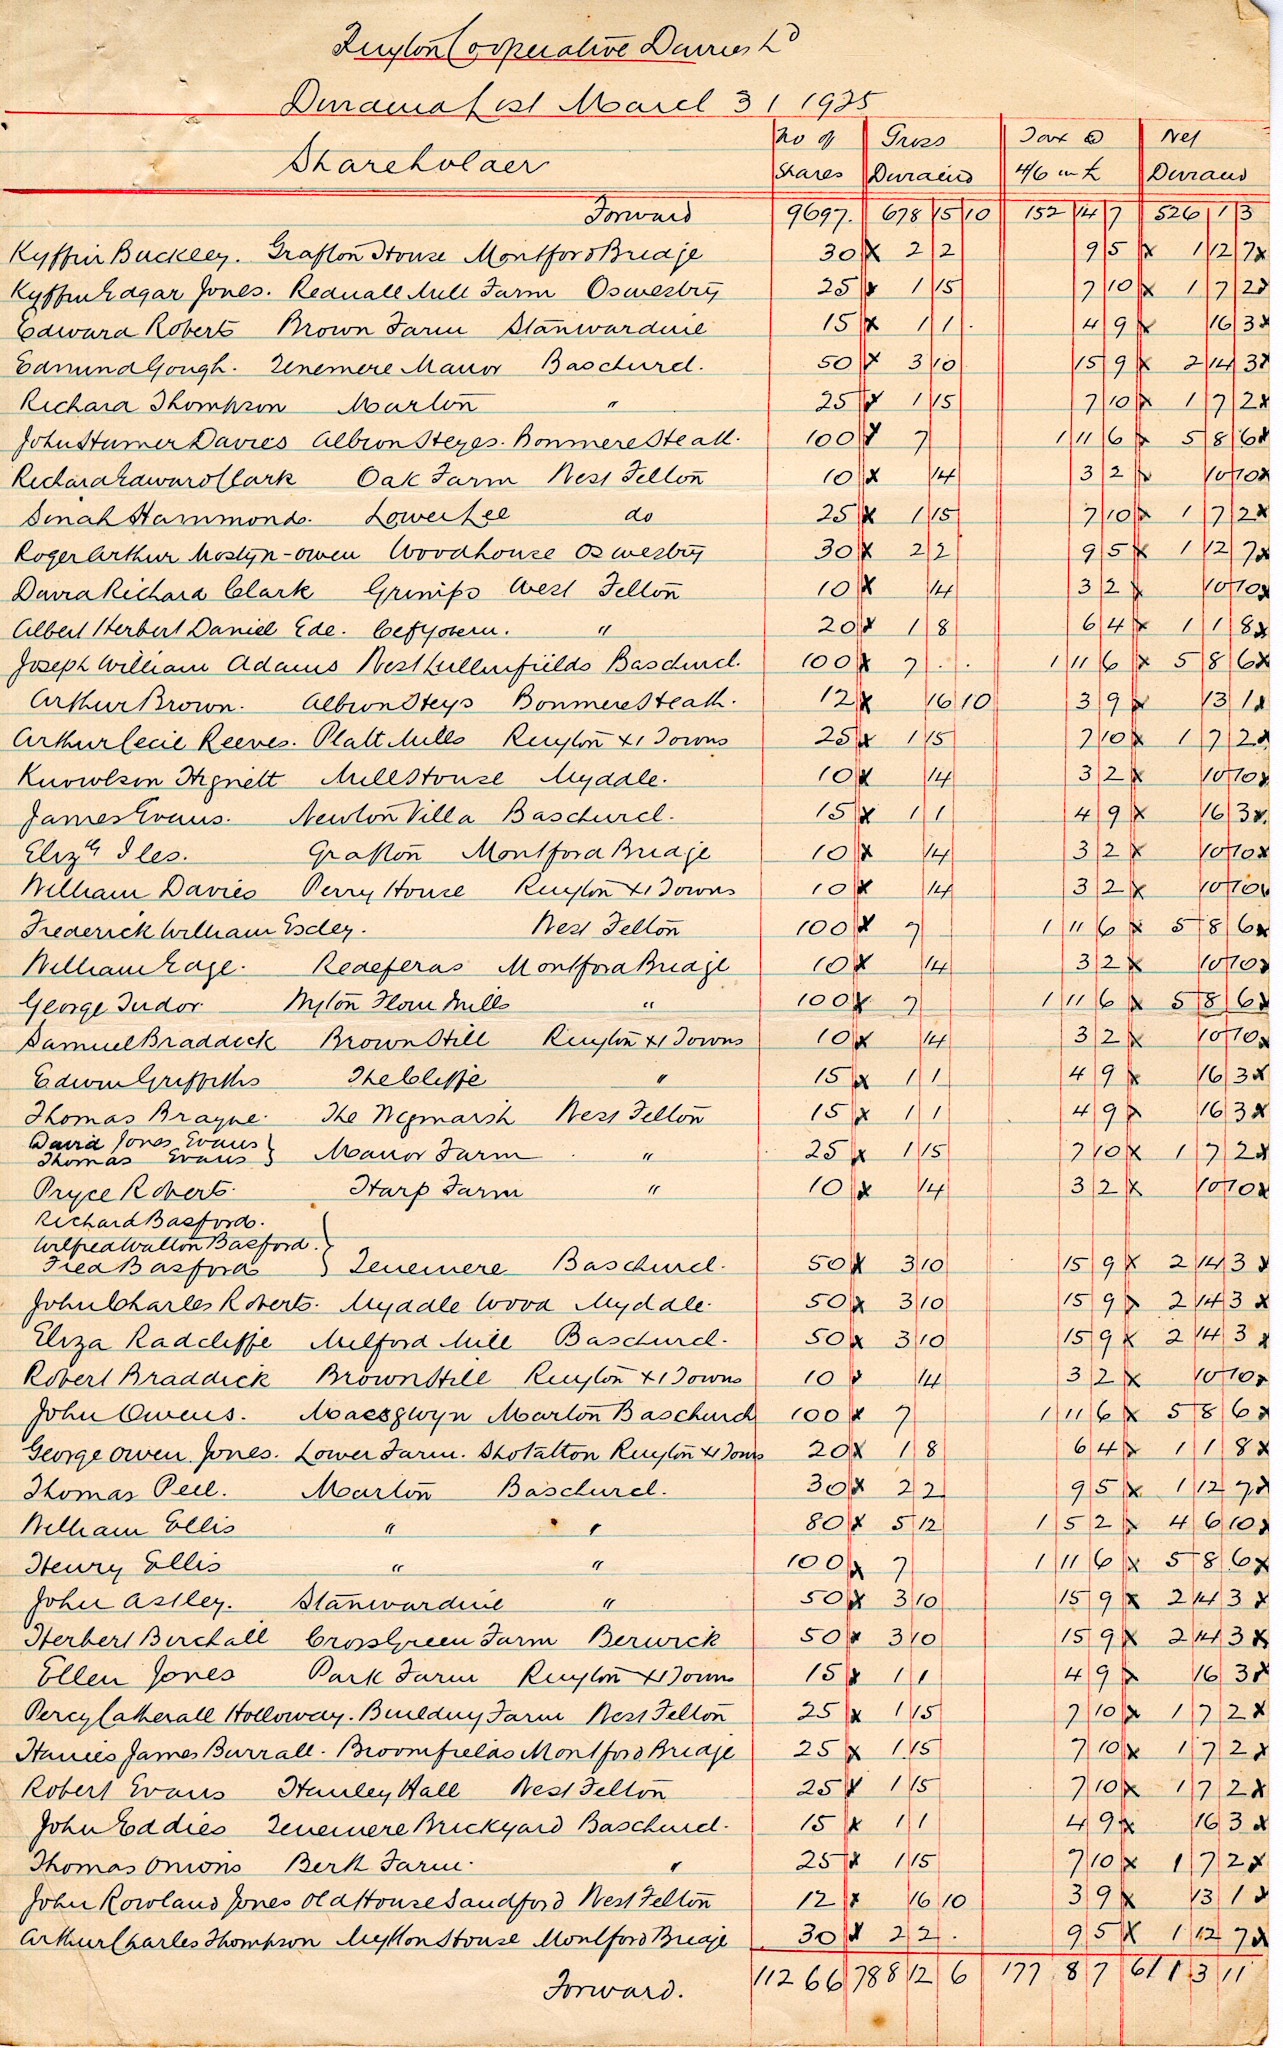 Ruyton Cooperative Dairies Ld
Dividend List March 31 1925
Shareholder No of Shares Gross Dividend Tax @ 4/6 in £ Net Dividend
Forward 9697. 678 15 10 152 14 7 526 1 3
Kyffin Buckley. Grafton House Montford Bridge 30 x 2 2 9 5 x 1 12 7 x
Kyffin Edgar Jones. Rednall Mill Farm Oswestry 25 x 1 15 7 10 x 1 7 2 x
Edward Roberts Brown Farm Stanwardine 15 x 1 1 . 4 9 x 16 3 x
Edmund Gough. Tenemere Manor Baschurch. 50 x 3 10 15 9 x 2 14 3 x
Richard Thompson Marton " 25 x 1 15 7 10 x 1 7 2 x
John Hamer Davies Albion Heyes. Bonmere Heath. 100 x 7 1 11 6 x 5 8 6 x
Richard Edward Clark Oak Farm West Felton 10 x 14 3 2 x 10 10 x
Dinah Hammonds. Lower Lee do 25 x 1 15 7 10 x 1 7 2 x
Roger Arthur Mostyn-Owen Woodhouse Oswestry 30 x 2 2 9 5 x 1 12 7 x
David Richard Clark Grimps West Felton 10 x 14 3 2 x 10 10 x
Albert Herbert Daniel Ede. " 20 x 1 8 6 4 x 1 1 8 x
Joseph William Adams Baschurch. 100 x 7 . . 1 11 6 x 5 8 6 x
Arthur Brown. Albion Heys Bonmere Heath. 12 x 16 10 3 9 x 13 1 x
Arthur Cecil Reeves. Platt Mills Ruyton X1 Towns 25 x 1 15 7 10 x 1 7 2 x
Knowlson Hignett Mill House Myddle. 10 x 14 3 2 x 10 10 x
James Evans. Newton Villa Baschurch. 15 x 1 1 4 9 x 16 3 x
Elizth Iles. Grafton Montford Bridge 10 x 14 3 2 x 10 10 x
William Davies Perry House Ruyton X1 Towns 10 x 14 3 2 x 10 10 x
Frederick William Esdey. West Felton 100 x 7 1 11 6 x 5 8 6 x
William Edge. Redeferds Montford Bridge 10 x 14 3 2 x 10 10 x
George Tudor Mytton Flour Mills " 100 x 7 1 11 6 x 5 8 6 x
Samuel Braddick Brown Hill Ruyton X1 Towns 10 x 14 3 2 x 10 10 x
Edwin Griffiths The Cliffe " 15 x 1 1 4 9 x 16 3 x
Thomas Brayne. The Wegmarsh West Felton 15 x 1 1 4 9 x 16 3 x
David Jones Evans
Thomas Evans } Manor Farm " 25 x 1 15 7 10 x 1 7 2 x
Pryce Roberts. Harp Farm " 10 x 14 3 2 x 10 10 x
Richard Basford.
Wilfred Walton Basford.
Fred Basford } Tenemere Baschurch. 50 x 3 10 15 9 x 2 14 3 x
John Charles Roberts. Myddle Wood Myddle. 50 x 3 10 15 9 x 2 14 3 x
Eliza Radcliffe Milford Mill Baschurch. 50 x 3 10 15 9 x 2 14 3 x
Robert Braddick Brown Hill Ruyton X1 Towns 10 x 14 3 2 x 10 10 x
John Owens. Maesgwyn Marton Baschurch 100 x 7 1 11 6 x 5 8 6 x
George Owen Jones. Lower Farm. Shotatton Ruyton X1 Towns 20 x 1 8 6 4 x 1 1 8 x
Thomas Peel. Marton Baschurch. 30 x 2 2 9 5 x 1 12 7 x
William Ellis " " 80 x 5 12 1 5 2 x 4 6 10 x
Henry Ellis " " 100 x 7 1 11 6 x 5 8 6 x
John Astley. Stanwardine " 50 x 3 10 15 9 x 2 14 3 x
Herbert Birchall Cross Green Farm Berwick 50 x 3 10 15 9 x 2 14 3 x
Ellen Jones Park Farm Ruyton X1 Towns 15 x 1 1 4 9 x 16 3 x
Percy Catherall Holloway. Building Farm West Felton 25 x 1 15 7 10 x 1 7 2 x
James Burrall. Broomfields Montford Bridge 25 x 1 15 7 10 x 1 7 2 x
Robert Evans Hanley Hall West Felton 25 x 1 15 7 10 x 1 7 2 x
John Eddies Tenemere Brickyard Baschurch. 15 x 1 1 4 9 x 16 3 x
Thomas Onions Berth Farm. " 25 x 1 15 7 10 x 1 7 2 x
John Rowland Jones Old House Sandford West Felton 12 x 16 10 3 9 x 13 1 x
Arthur Charles Thompson Mytton House Montford Bridge 30 x 2 2 . 9 5 x 1 12 7 x
Forward. 11266 788 12 6 177 8 7 611 3 11